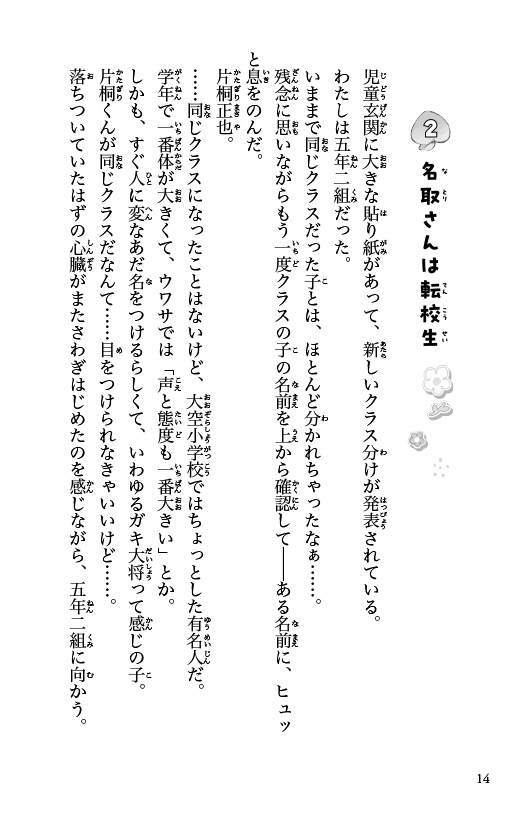 2 名取さんは転校生
児童玄関に大きな貼り紙があって、新しいクラス分けが発表されている。
わたしは五年二組だった。
いままで同じクラスだった子とは、ほとんど分かれちゃったなぁ……。
残念に思いながらもう一度クラスの子の名前を上から確認して――ある名前に、ヒュッ
と息をのんだ。
片桐正也。
……同じクラスになったことはないけど、大空小学校ではちょっとした有名人だ。
学年で一番体が大きくて、ウワサでは「声と態度も一番大きい」とか。
しかも、すぐ人に変なあだ名をつけるらしくて、いわゆるガキ大将って感じの子。
片桐くんが同じクラスだなんて……目をつけられなきゃいいけど……。
落ちついていたはずの心臓がまたさわぎはじめたのを感じながら、五年二組に向かう。
14